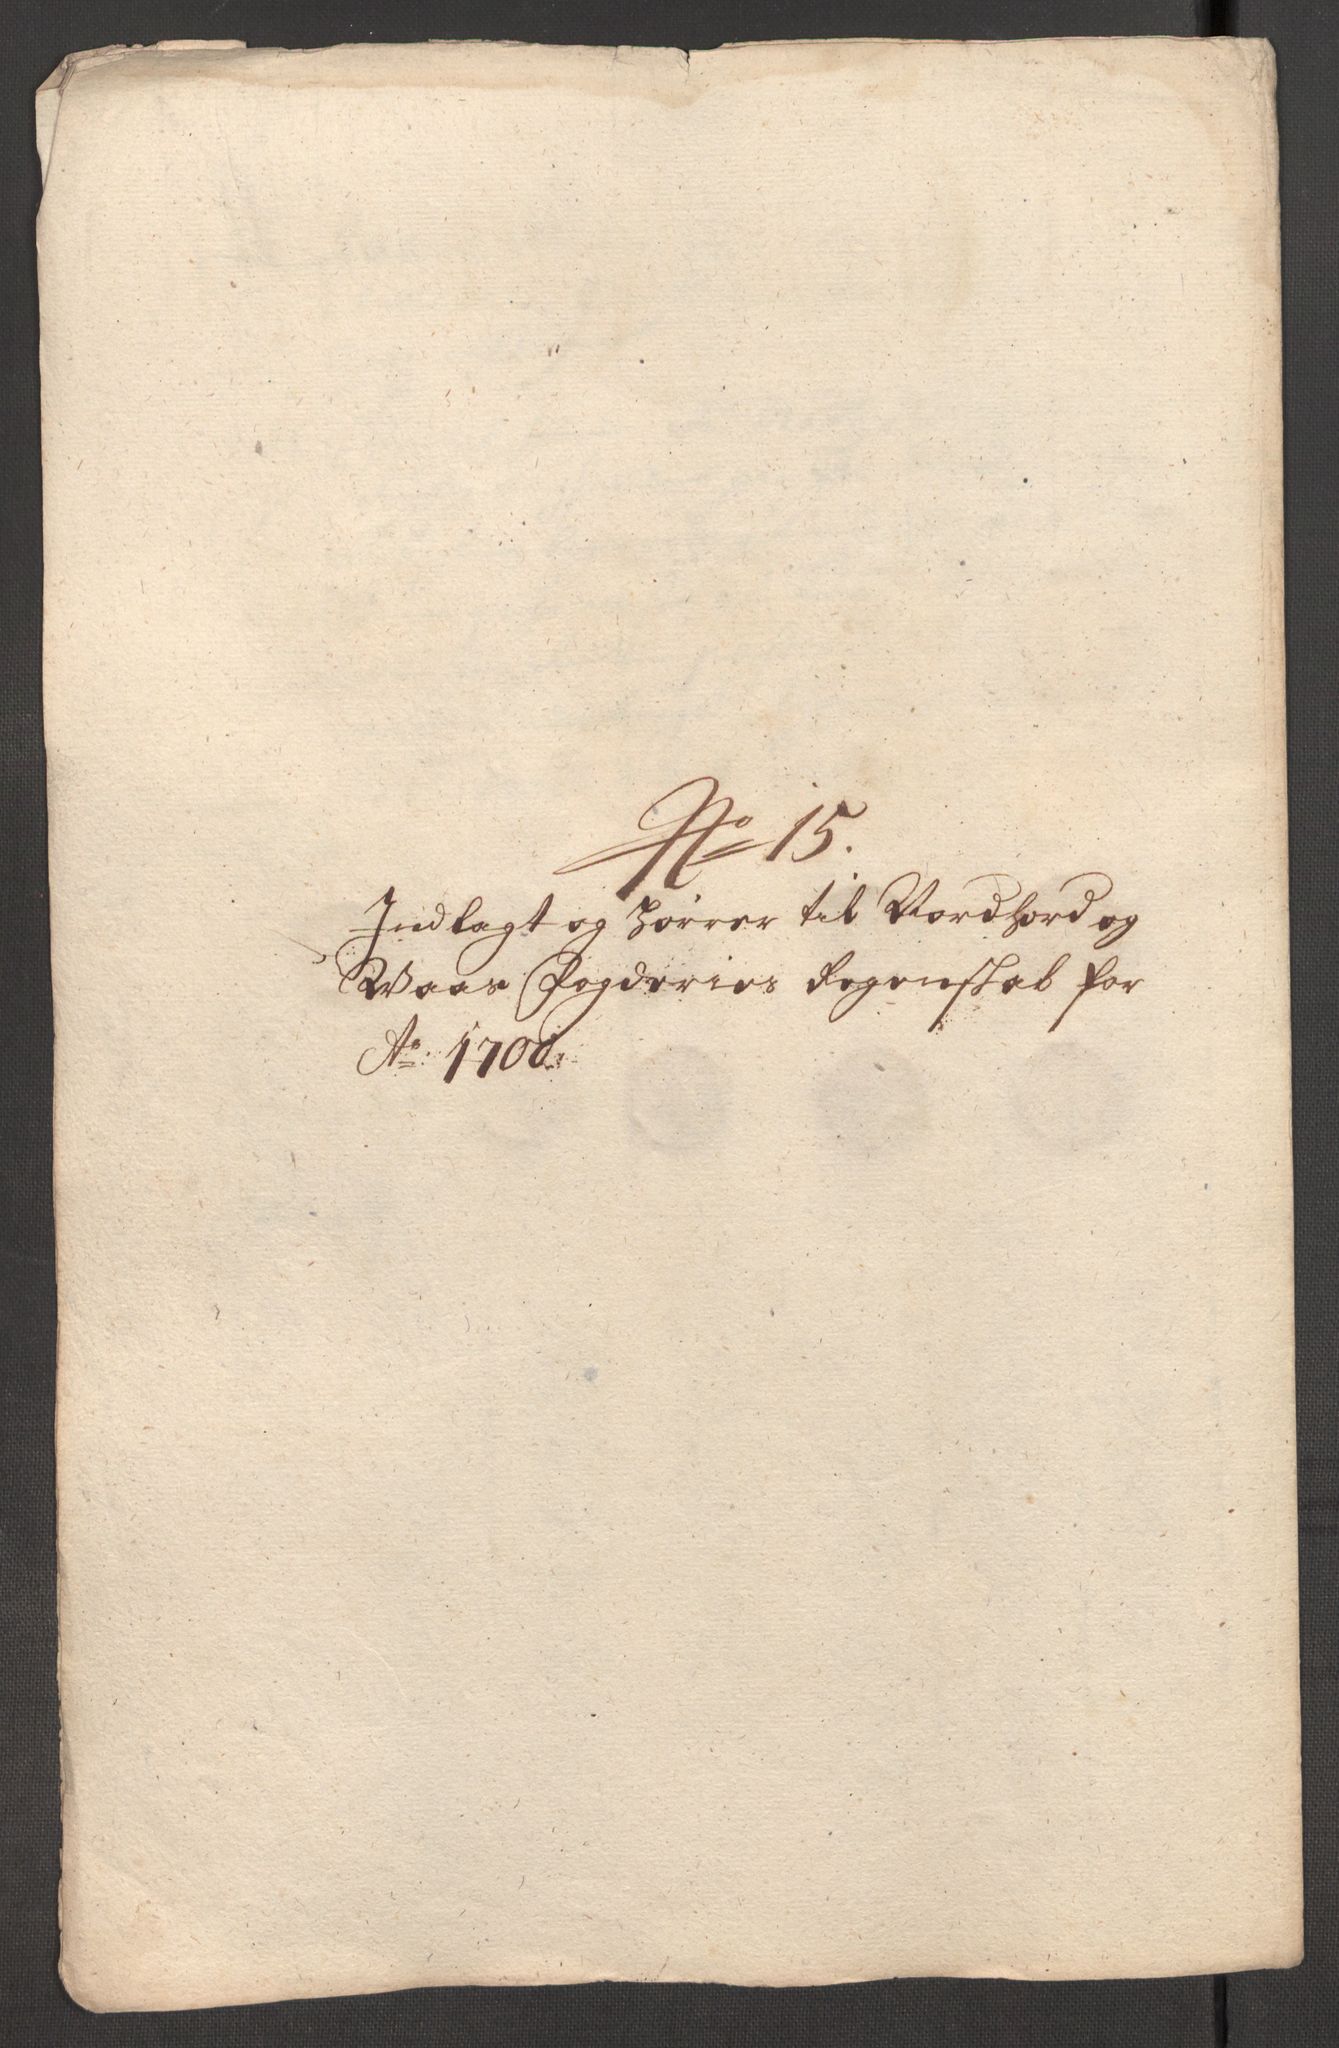 No 15.
Indlagt og hörrer til Nordhord og
Waas Fogderies Regenskab for
Ao. 1700.